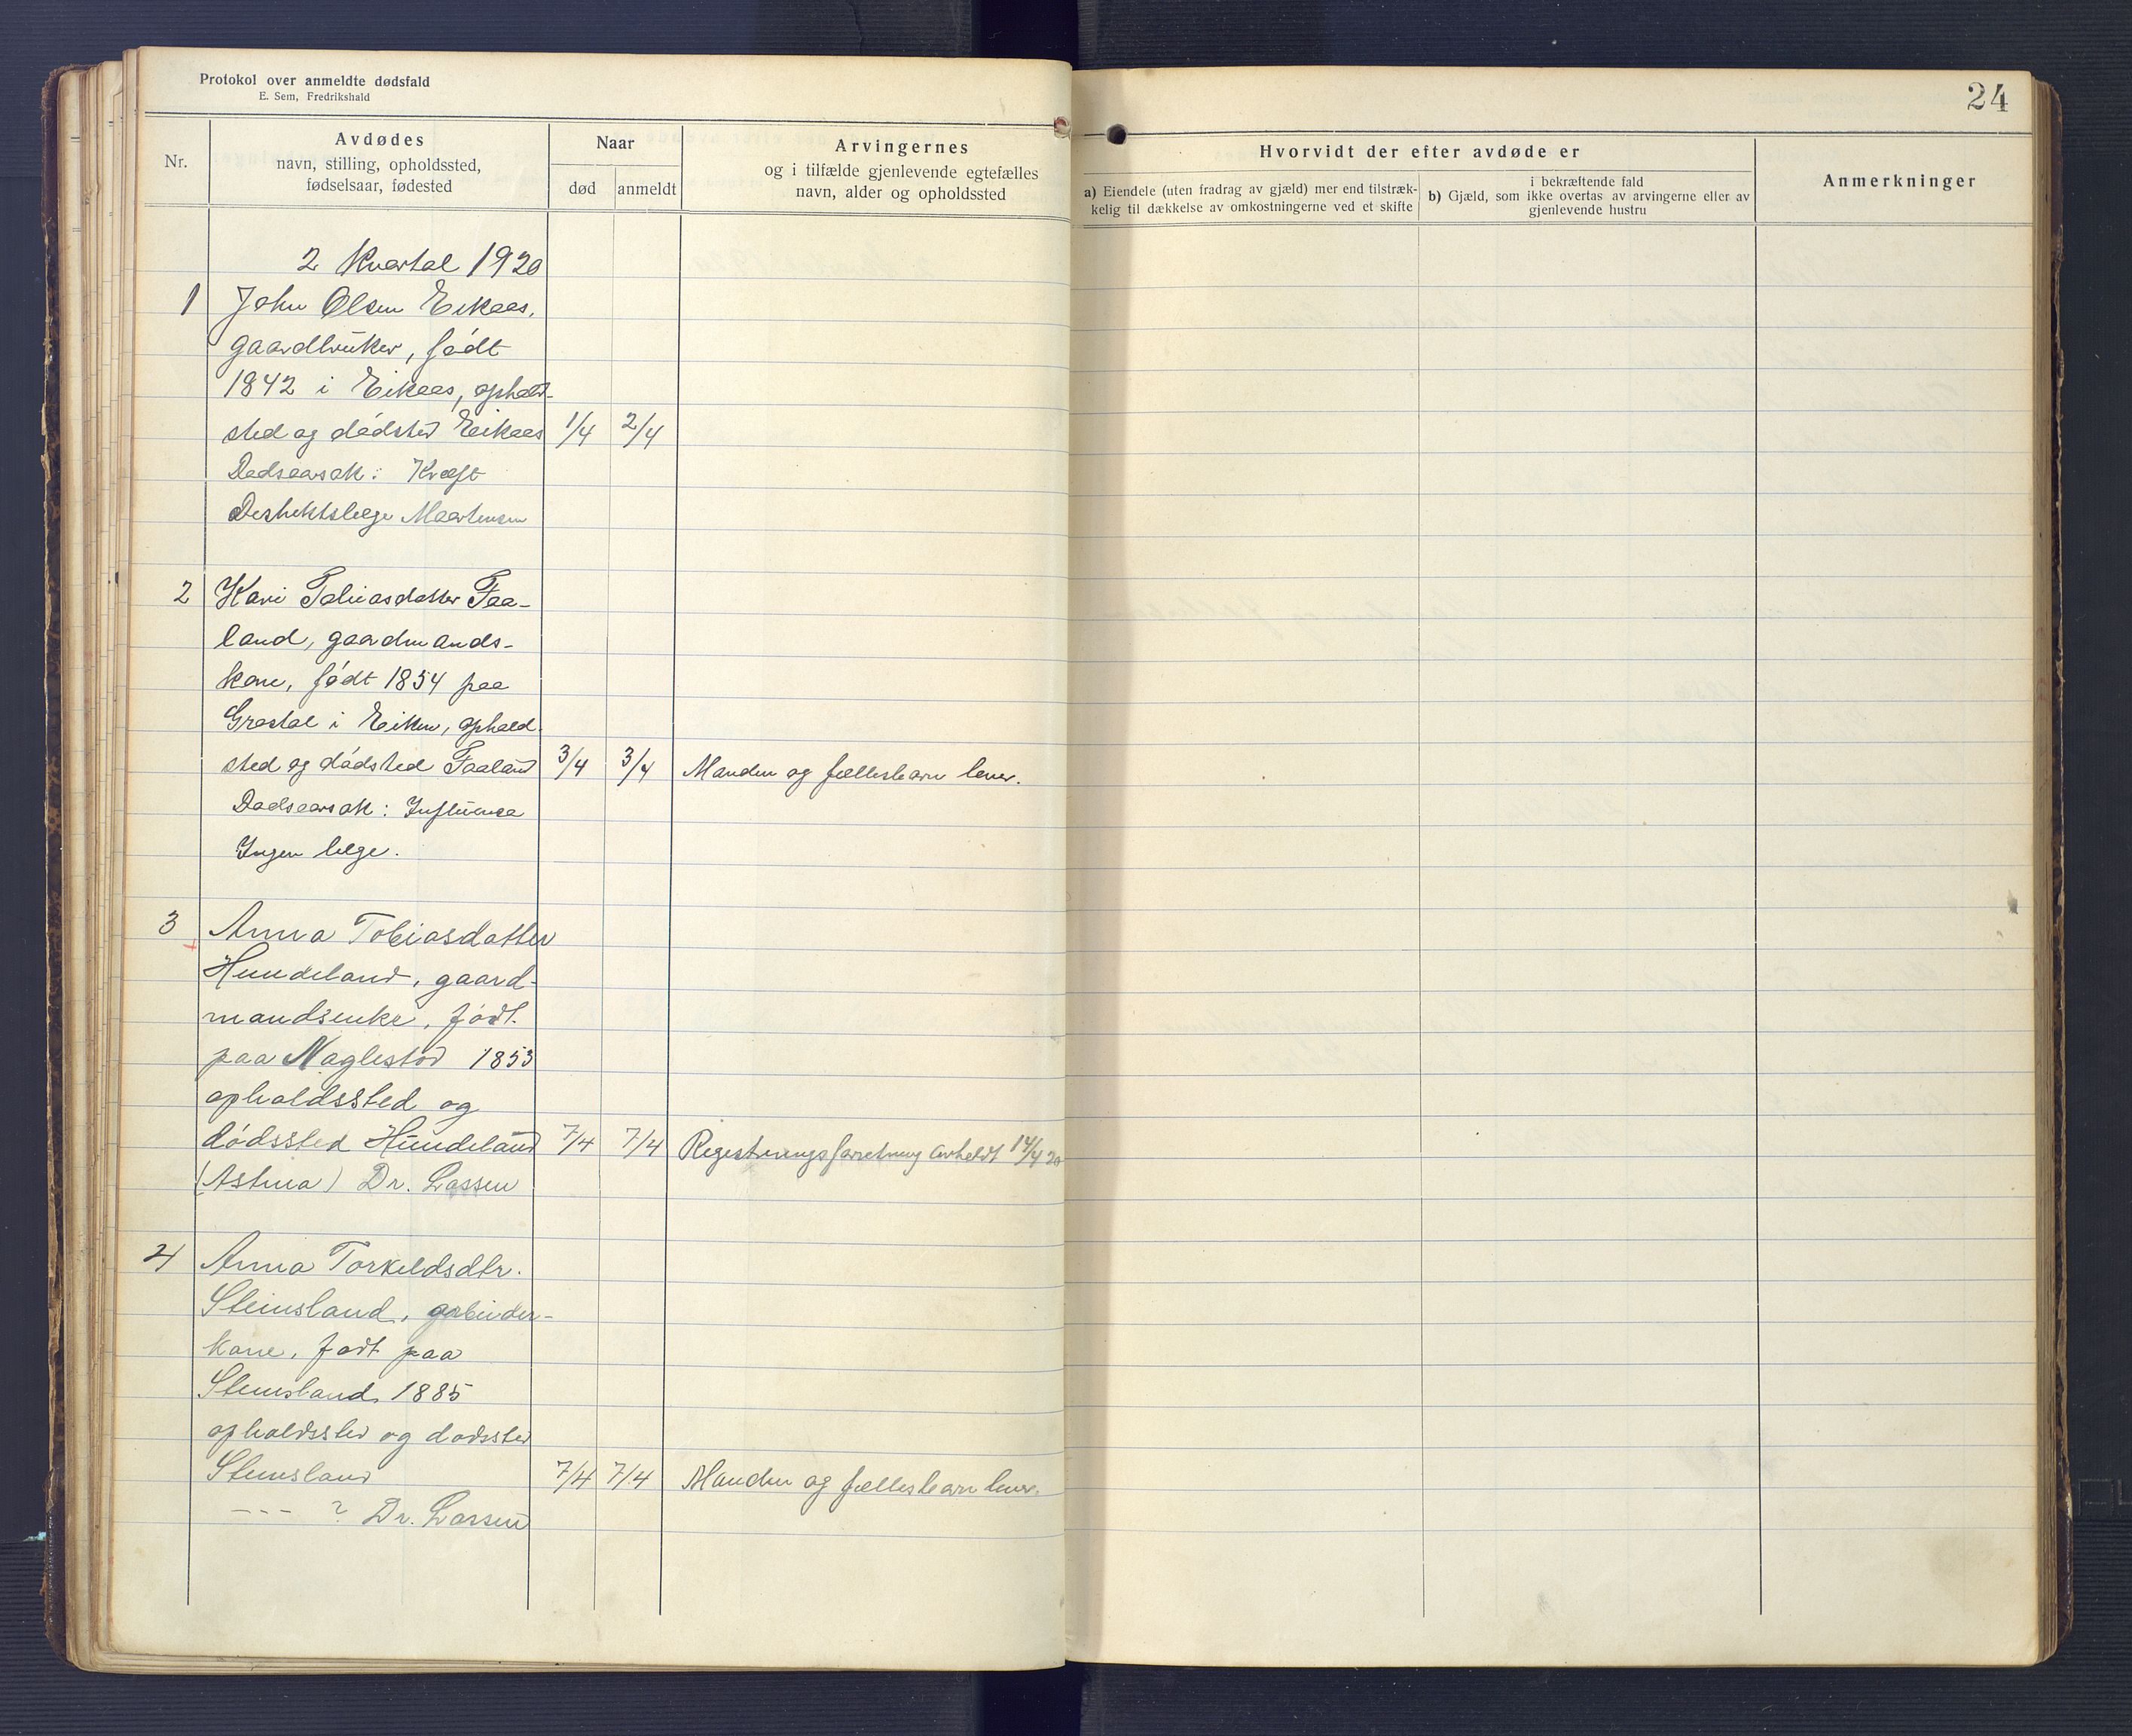 Protokol over anmeldte dødsfald
E. Sem, Fredrikshald
24
Nr.
Avdødes
navn, stilling, opholdssted,
fødselsaar, fødested
Naar
død
anmeldt
Arvingernes
og i tilfælde gjenlevende egtefælles
navn, alder og opholdssted
Hvorvidt der efter avdøde er
a) Eiendele (uten fradrag av gjæld) mer end tilstræk-
kelig til dækkelse av omkostningerne ved et skifte
i bekræftende fald
b) Gjæld, som ikke overtas av arvingerne eller av
gjenlevende hustru
Anmerkninger
2 Kvartal 1920
1 John Olsen Eikaas,
gaardbruker, født
1842 i Eikaas, ophold-
sted og dødsted Eikaas 1/4 2/4
Dødsaarsak: Kræft
Distriktslæge Maartensen
2 Kari Tobiasdatter Faa-
land, gaardmands-
kone, født 1854 paa
i Eiken, ophold-
sted og dødsted Faaland 3/4 3/4 Manden og fællesbarn lever.
Dødsaarsak: Influensa
Ingen læge.
3 Anna Tobiasdatter
Hundeland, gaard-
mandsenke, født
paa Naglestad 1853
opholdssted og
dødssted Hundeland 7/4 7/4 Registreringsforretning avholdt 14/4 20
(Astma) Dr. Lassen
4 Anna Torkeldsdtr.
Steinsland,
kone, født paa
Steinsland 1885
opholdssted og dødssted
Steinsland 7/4 7/4 Manden og fællesbarn lever.
--- ? Dr. Lassen